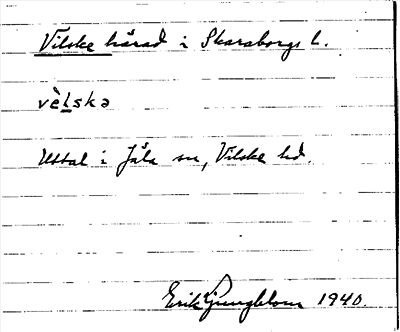 Vilske härad i Skaraborgs l.
vè̀lska
Uttal i Jäla sn, Vilske hd.
Erik Ljungblom 1940.